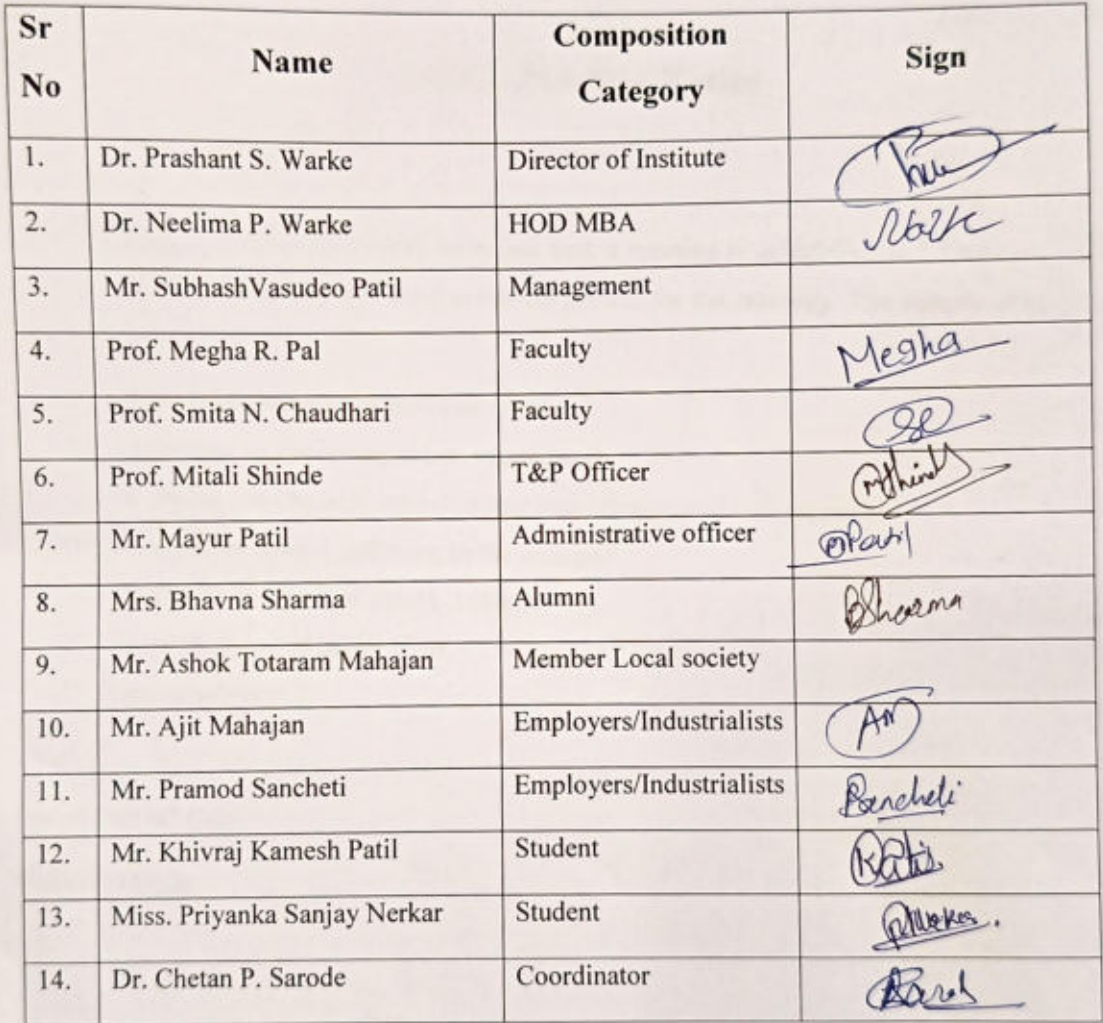 Sr No Name Composition Category Sign
1. Dr. Prashant S. Warke Director of Institute
2. Dr. Neelima P. Warke HOD MBA
3. Mr. SubhashVasudeo Patil Management
4. Prof. Megha R. Pal Faculty Megha
5. Prof. Smita N. Chaudhari Faculty
6. Prof. Mitali Shinde T&P Officer
7. Mr. Mayur Patil Administrative officer
8. Mrs. Bhavna Sharma Alumni BSharma
9. Mr. Ashok Totaram Mahajan Member Local society
10. Mr. Ajit Mahajan Employers/Industrialists AM
11. Mr. Pramod Sancheti Employers/Industrialists
12. Mr. Khivraj Kamesh Patil Student
13. Miss. Priyanka Sanjay Nerkar Student
14. Dr. Chetan P. Sarode Coordinator